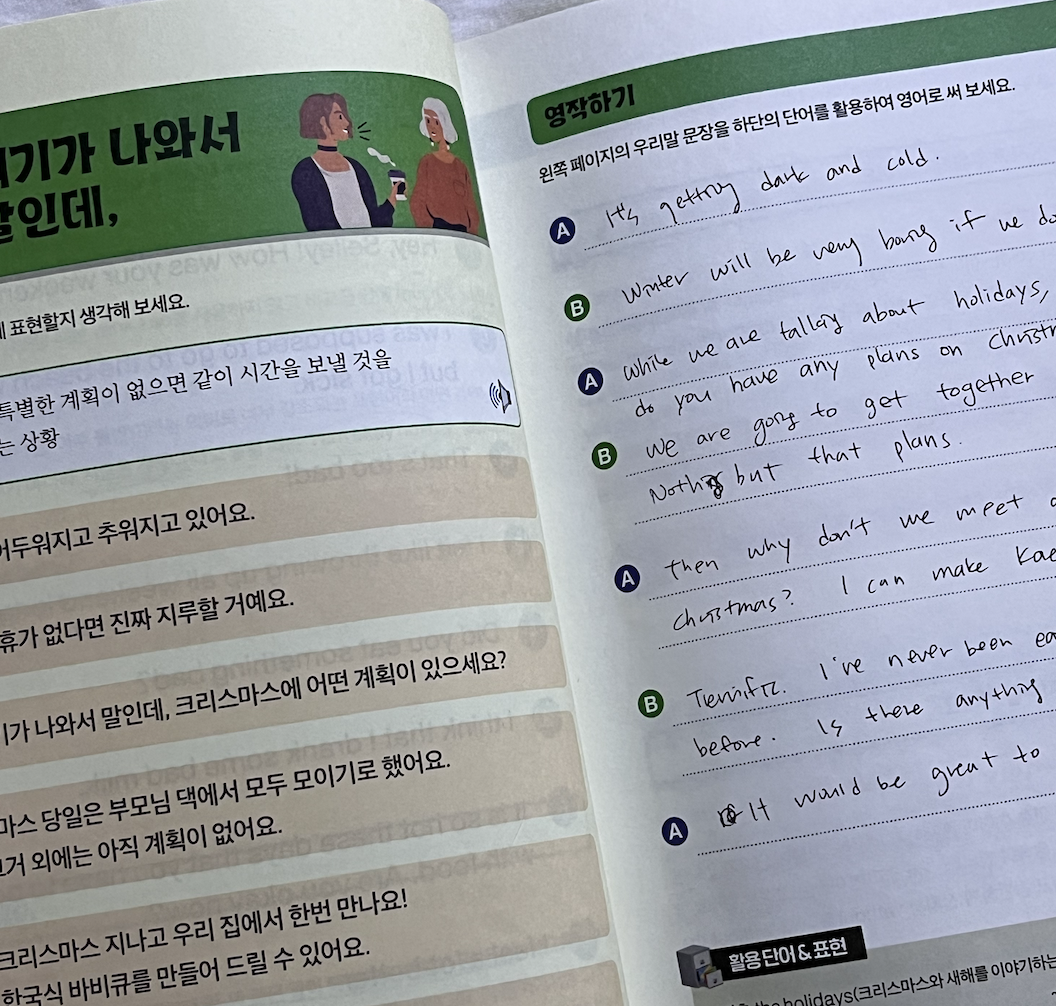 나와서
말인데,
표현할지 생각해 보세요.
특별한 계획이 없으면 같이 시간을 보낼 것을
는 상황
어두워지고 추워지고 있어요.
휴가 없다면 진짜 지루할 거예요.
기가 나와서 말인데, 크리스마스에 어떤 계획이 있으세요?
마스 당일은 부모님 댁에서 모두 모이기로 했어요.
그거 외에는 아직 계획이 없어요.
크리스마스 지나고 우리 집에서 한번 만나요!
한국식 바비큐를 만들어 드릴 수 있어요.
영작하기
왼쪽 페이지의 우리말 문장을 하단의 단어를 활용하여 영어로 써 보세요.
A It's getting dark and cold.
B Winter will be very boring if we do
A While we are talking about holidays,
do you have any plans on Christm
B We are going to get together
Nothing but that plans.
A Then why don't we meet
christmas? I can make Kore
B Terrific. I've never been ea
before. Is there anything
A It would be great to
활용 단어 & 표현
the holidays(크리스마스와 새해를 이야기하는